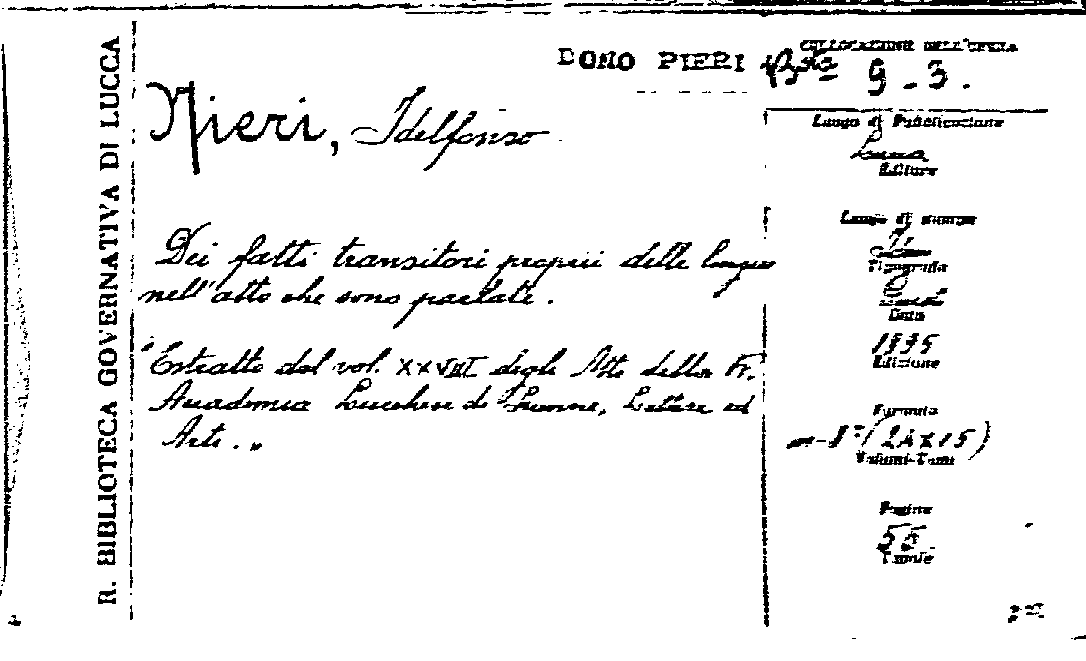 R. BIBLIOTECA GOVERNATIVA DI LUCCA
DONO PIERI
COLLOCAZIONE DELL'OPERA
9 - 3.
Nieri, Idelfonso
Dei fatti transitori proprii delle lingue
nell'atto che sono parlate.
"Estratto dal vol. XXVIII degli Atti della R.
Accademia Lucchese di Scienze, Lettere ed
Arti."
Luogo di Pubblicazione
Lucca
Editore
Luogo di stampa
Tipografia
Data
1895
Edizione
Formato
in-8° (24x15)
Volumi-Tomi
Pagine
55
Tavole